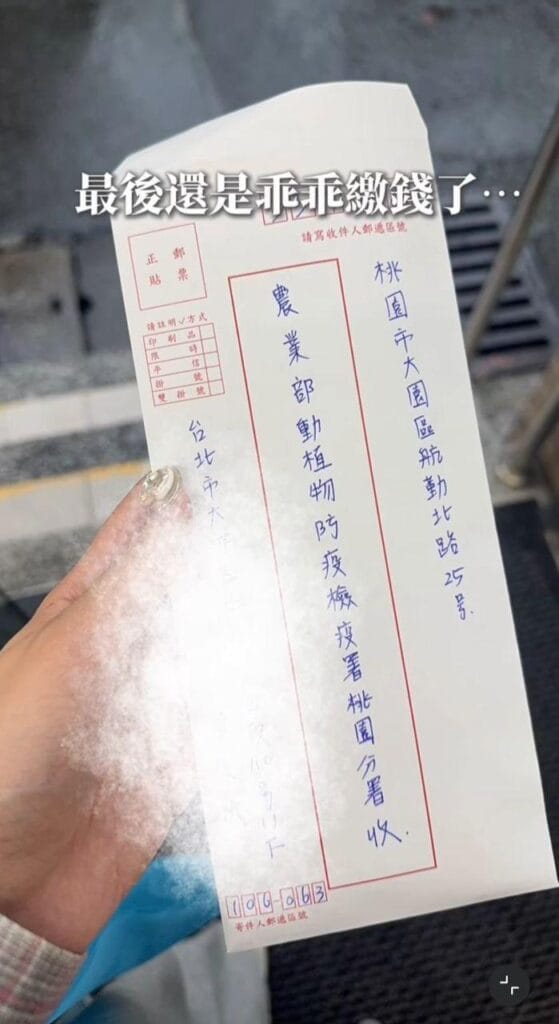 最後還是乖乖繳錢了…
請寫收件人郵遞區號
桃園市大園區航勤北路25号.
農業部動植物防疫檢疫署桃園分署 收.
正貼
郵票
請註明✓方式
印刷品
限時
平信
掛號
雙掛號
台北市大
106-063
寄件人郵遞區號